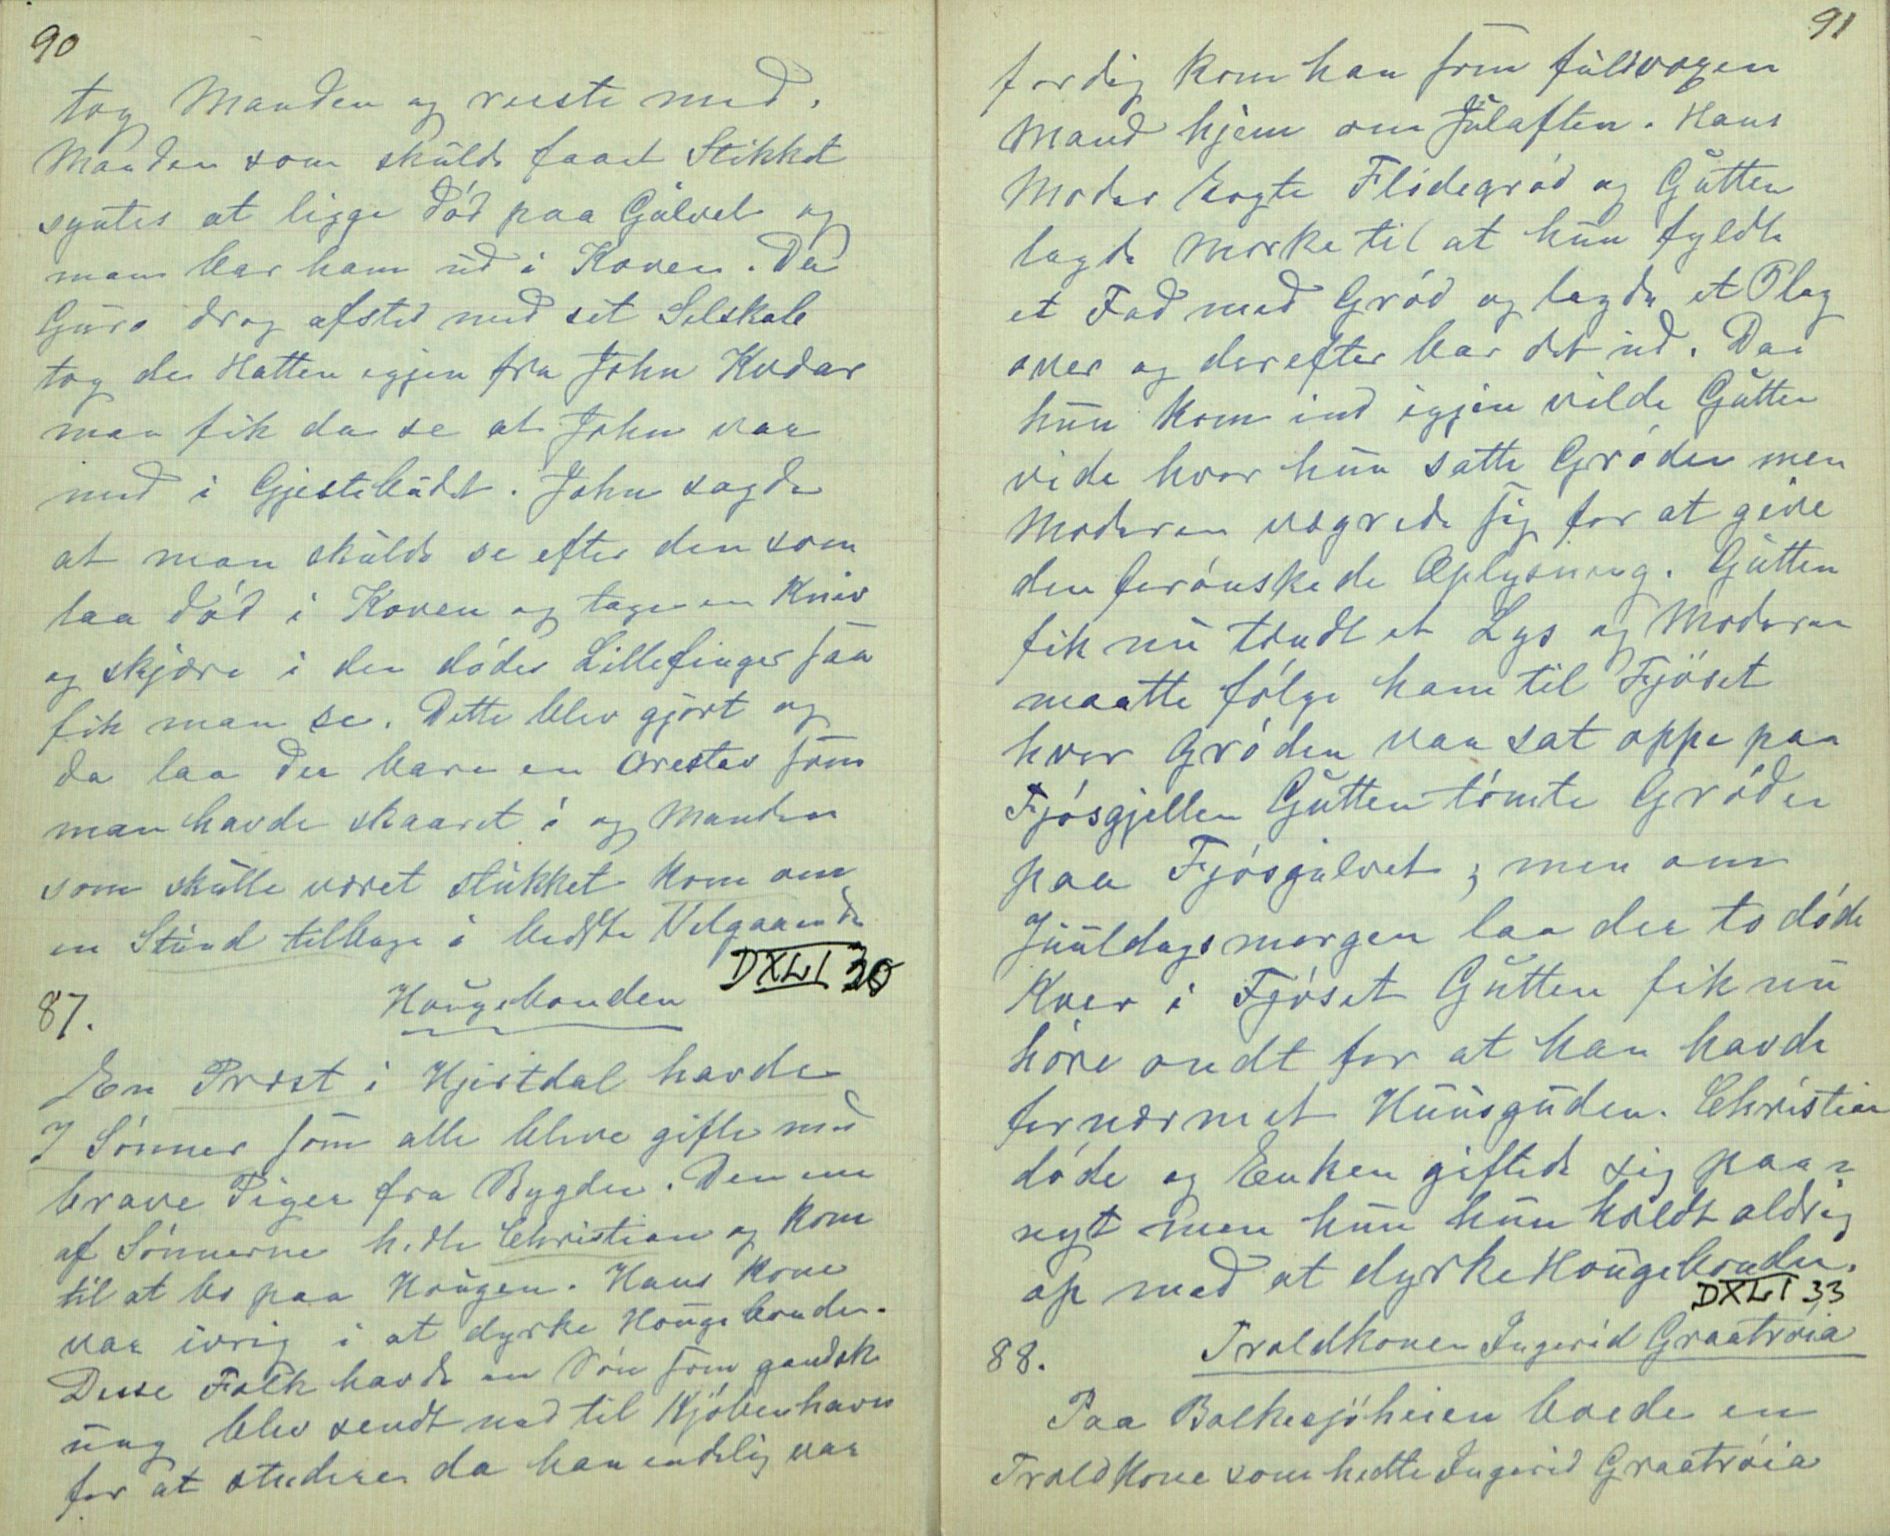 90
tog Manden og reiste med.
Manden som skulde faaet Stikket
syntes at ligge död paa Gulvet og
man bar ham ud i Koven. Da
Guro drog afsted med sit Selskab
tog de Hatten igjen fra John Kvdar
man fik da se at John var
med i Gjestebudt. John sagde
at man skulde se efter den som
laa död i Koven og tage en Kniv
og skjære i den dödes Lillefinger saa
fik man se. Dette blev gjört og
da laa der bare en Orestav som
man havde skaaret i og Manden
som skulle været stukket kom om
en Stund tilbage i bedste Velgaaende
DXLI 30
87. Hougebonden
En Præst i Hjertdal havde
7 Sönner som alle bleve gifte med
brave Piger fra Bygden. Den ene
af Sönnerne hedte Christian og kom
til at bo paa Hougen. Hans Kone
var ivrig i at dyrke Hougebonden.
Disse Folk havde en Sön som gandsk
ung blev sendt ned til Kjöbenhavn
for at studere da han endelig var
91
ferdig kom han som fuldvoxen
Mand hjem om Julaften. Hans
Moder kogte Flödegröd og Gutten
lagde Merke til at hun fyldte
et Fad med Gröd og lagde et Plag
over og derefter bar det ud. Daa
hun kom ind igjen vilde Gutten
vide hvor hun satte Gröden men
Moderen vægrede sig for at give
den forönskede Oplysning. Gutten
fik nu tændt et Lys og Moderen
maatte fölge ham til Fjöset
hvor Gröden var sat oppe paa
Fjösgjellen Gutten tömte Gröden
paa Fjösgulvet; men om
Juuldagsmorgen laa der to döde
Kver i Fjöset Gutten fik nu
höre ondt for at han havde
fornærmet Huusguden. Christian
döde og Enken giftede sig paa
nyt men hun hun holdt aldrig
op med at dyrke Hougebonden.
DXLI 33
88. Troldkonen Ingerid Graatröia
Paa Bolkesjöheien boede en
Troldkone som hedte Ingerid Graatröia